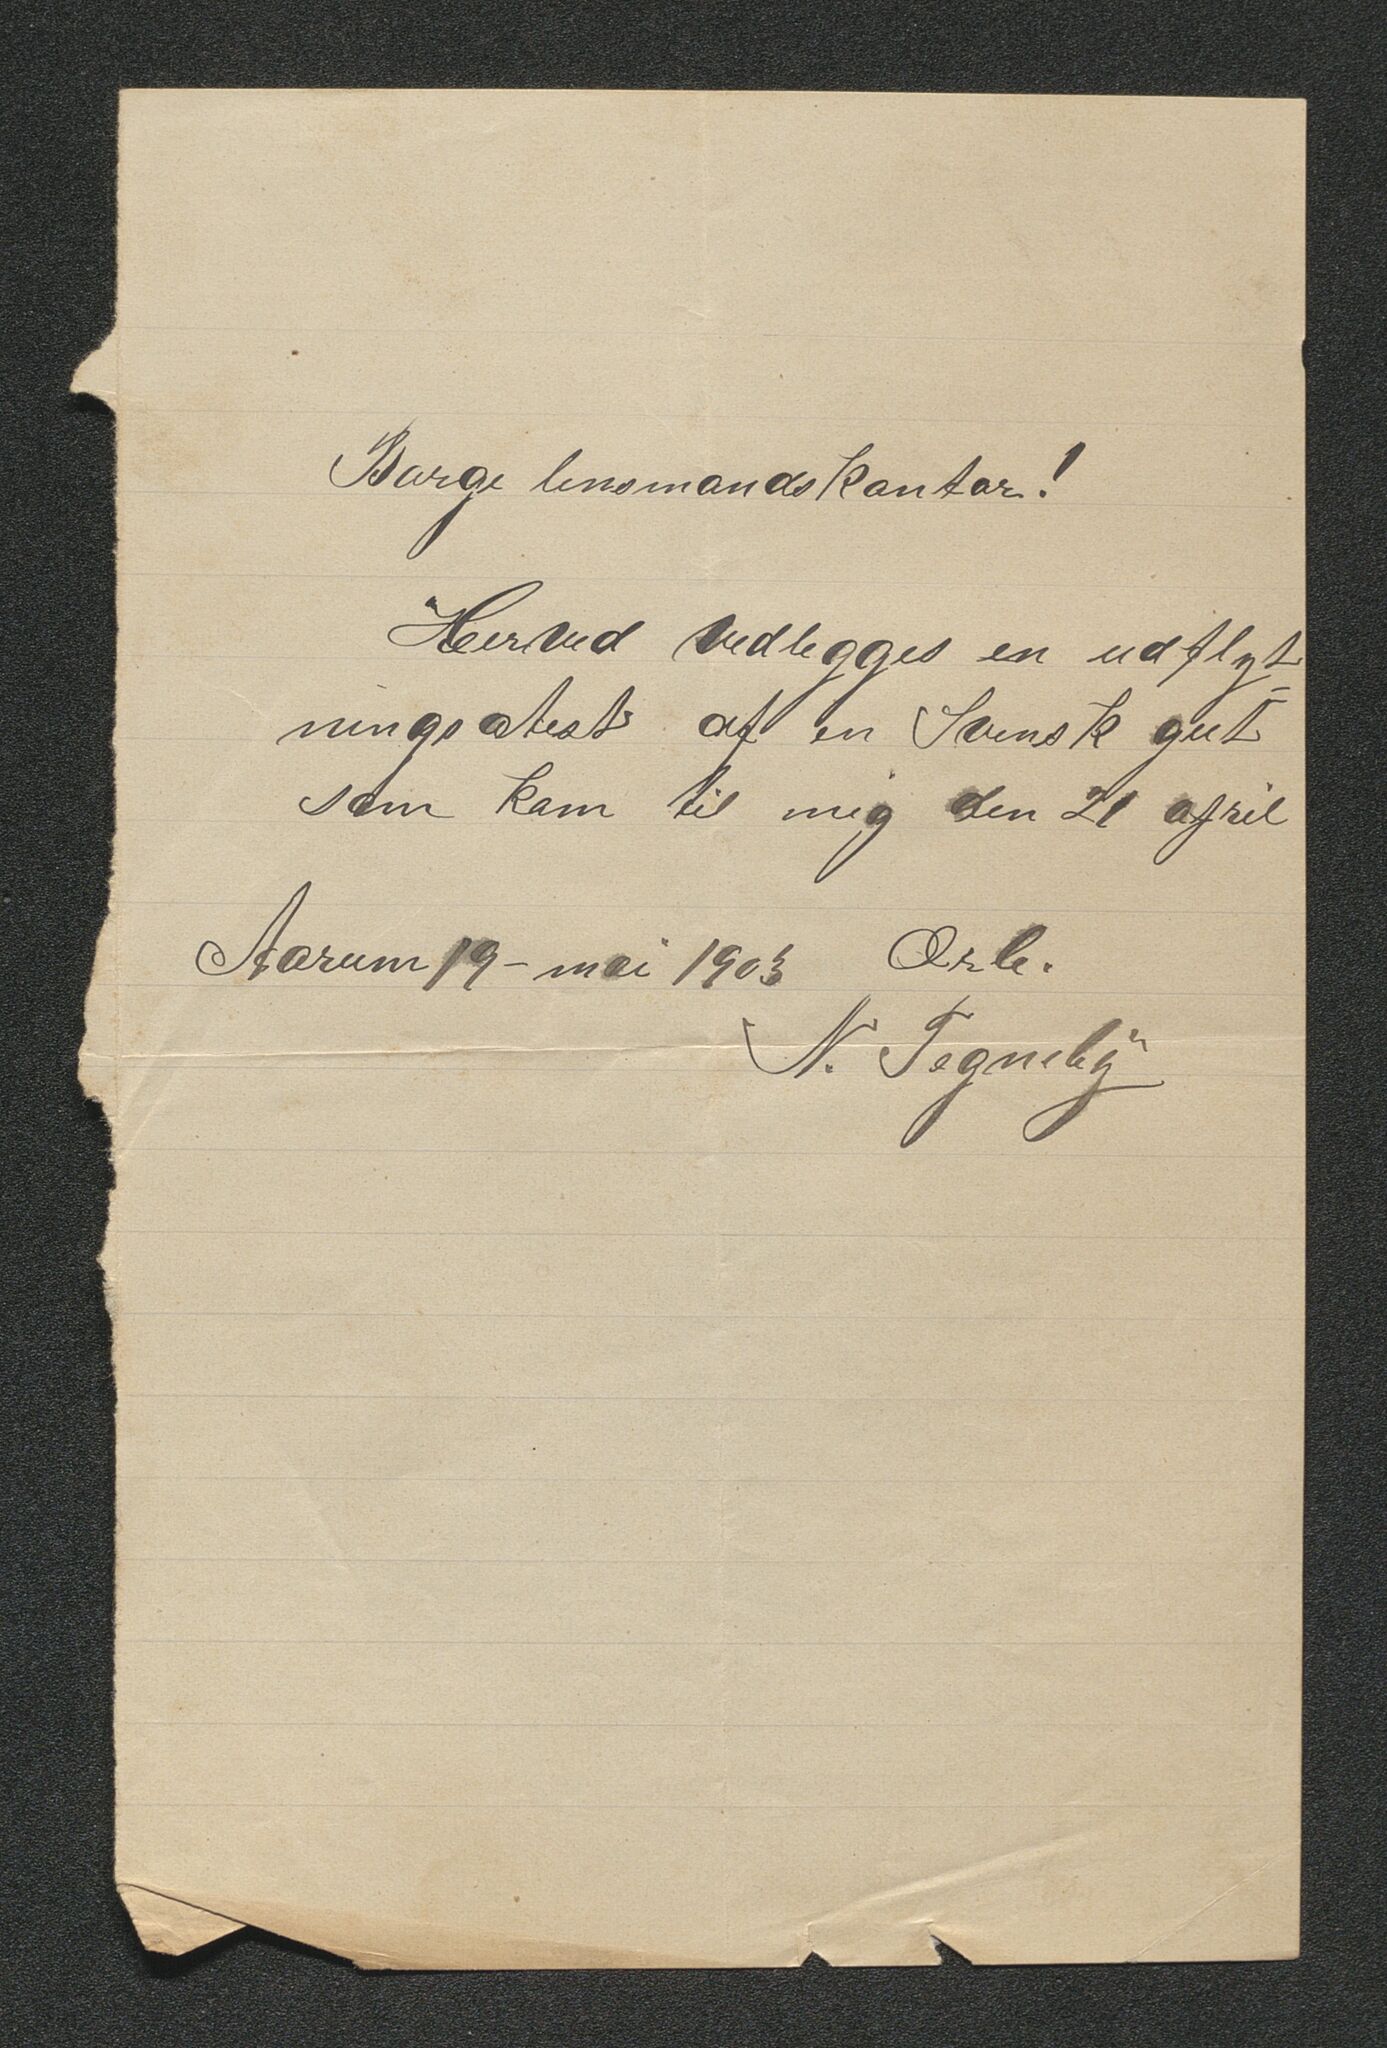 Borge lensmandskontor!
Herved vedlegges en udflyt=
ningsatest af en Svensk gut
som kom til mig den 21 april
Aarum 19 - mai 1903 Ærb.
N. Tegneby